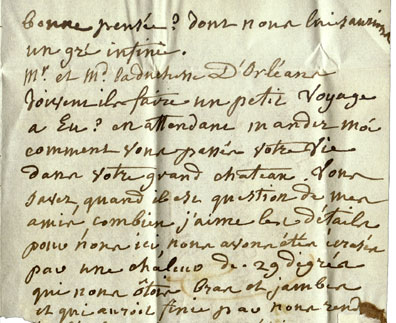 bonne pensée? dont nous lui saurions
un gré infini.
Mr. et Me. la duchesse D'Orléans
doivent ils faire un petit voyage
a Eu? en attendant mandez moi
comment vous passés votre vie
dans votre grand chateau. vous
savez, quand il est question de mes
amis combien j'aime les détails
pour nous ici, nous avons étés écrasés
par une chaleur de 29 degrés
qui nous ôtoit bras et jambes
et qui auroit finie par nous rendre